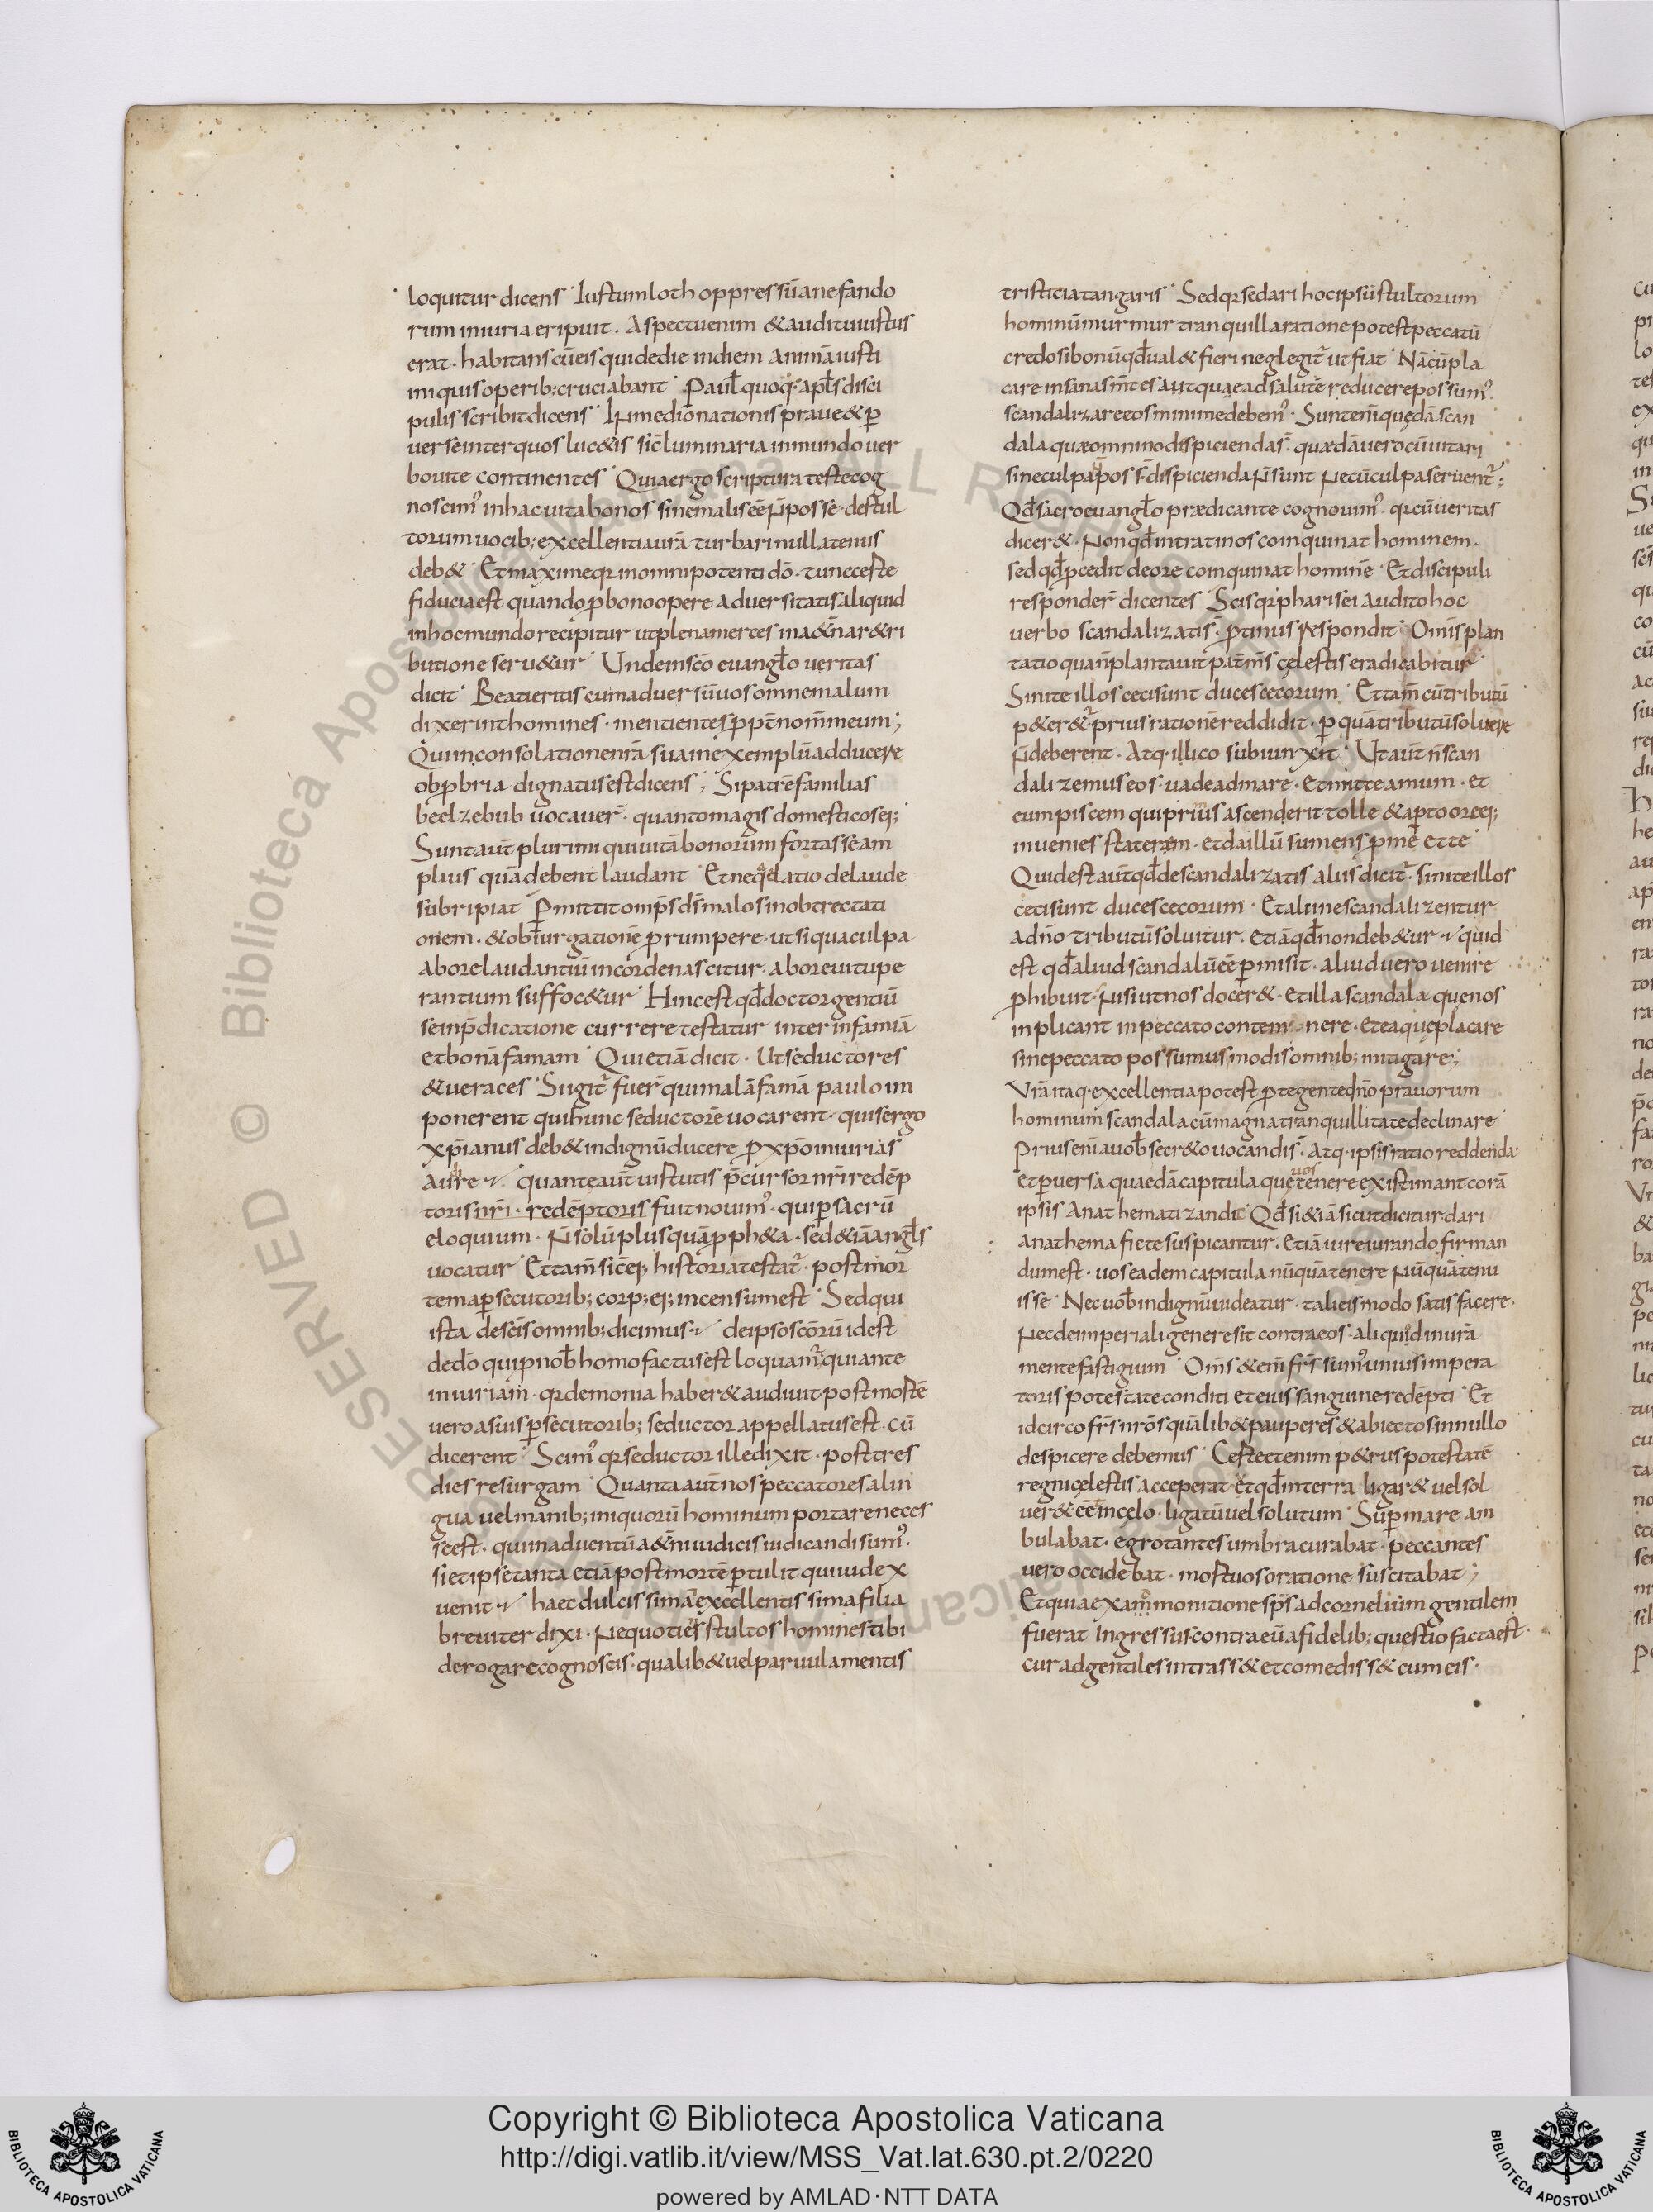 loquitur dicens Iustum loth oppressū a nefando
rum iniuria eripuit. Aspectu enim & auditu iustus
erat. habitans cū eis qui de die in diem animā iusti
iniquis operib; cruciabant Paul̄ quoq; apl̄s disci
pulis scribit dicens In medio nationis prauę & ꝑ
uersę inter quos luc&is sic̄ luminaria in mundo uer
bo uitę continentes Quia ergo scriptura teste cog
noscim' in hac uita bonos sine malis eē ñ posse. de stul
torum uocib; excellentia ur̄a turbari nullatenus
deb& Et maxime qr in omnipotenti dō. tunc certe
fiducia est quando ꝓ bono opere aduersitatis aliquid
in hoc mundo recipitur ut plena merces in aet̄na r&ri
butione seru&ur Unde in scō euangl̄o ueritas
dicit Beati eritis cum aduersū uos omne malum
dixerint homines. mentientes ꝓpt̄ nom̄ meum;
Qui in consolationē nr̄ā sua in exemplū adducere
obꝓbria dignatus est dicens; Si patrē familias
beelzebub uocauer̄. quanto magis domesticos ei;
Sunt aut̄ plurimi qui uitā bonorum fortasse am
plius quā debent laudant Et ne qa elatio de laude
subripiat ꝑmittit omp̄s ds̄ malos in obtrectati
onem. & obiurgationē ꝓrumpere. ut si qua culpa
ab ore laudantiū in corde nascitur. ab ore uitupe
rantium suffoc&ur Hinc est qd̄ doctor gentiū
se in p̄dicatione currere testatur inter infamiā
et bonā famam Qui etiā dicit. Ut seductores
& ueraces Si igit̄ fuer̄ qui malā famā paulo im
ponerent qui hunc seductorē uocarent. quis ergo
xp̄ianus deb& indignū ducere ꝓ xp̄o iniurias
quante aut̄ uirtutis p̄cursor nr̄i redēp
toris nr̄i. redēptoris fuit nouim'. qui ꝑ sacrū
eloquium. ñ solū plus quā ꝓph&a. sed & iā angl̄s
uocatur Et tam̄ sic̄ ei; historia testat̄. post mor
tem a ꝑsecutorib; corp; ei; incensum est Sed qui
ista de scīs omnib; dicimus de ipso scōrū id est
de dō qui ꝓ nob̄ homo factus est loquam̄ qui ante
iniuriam. qr demonia haber& audiuit post mortē
uero a suis ꝑsecutorib; seductor appellatus est. cū
dicerent Scim' qr seductor ille dixit. post tres
dies resurgam Quanta aut̄ nos peccatores a lin
gua uel manib; iniquorū hominum portare neces
se est. qui in aduentū aet̄ni iudicis iudicandi sum'.
si et ipse tanta etiā post mortē ꝑtulit qui iudex
uenit haec dulcissima excellentissima filia
breuiter dixi. ne quotiens stultos homines tibi
derogare cognoscis. qualib& uel paruula mentis
tristicia tangaris Sed qr sedari hoc ipsū stultorum
hominū murmur tranquilla ratione potest peccatū
credo si bonū qd̄ ual& fieri neglegit̄ ut fiat Nā cū pla
care insanas m̄tes aut quae ad salutē reducere possum'.
scandalizare eos minime debem'. Sunt eni quędā scan
dala quae omnino dispicienda s̄. quaedā uero cū uitari
sine culpa pos s̄ dispicienda ñ sunt ne cū culpa seruent̄;
Qd̄ sacro euangl̄o praedicante cognouim'. qr cū ueritas
dicer&. non qd̄ intrat in os coinquinat hominem.
sed qd̄ ꝓcedit de ore coinquinat hominē Et discipuli
responder̄ dicentes Scis qr pharisei audito hoc
uerbo scandalizati s̄. ꝓtinus respondit Omīs plan
tatio quā ñ plantauit pat̄ m̄s cęlestis eradicabitur
Sinite illos ceci sunt duces cecorum Et tam̄ cū tributū
p&er&. prius rationē reddidit. ꝑ quā tributū soluere
ñ deberent. Atq; illico subiunxit Ut aut̄ ñ scan
dalizemus eos. uade ad mare. et mitte amum. et
eum piscem qui primus ascenderit tolle & apto ore ei;
inuenies staterem. et da illū sumens ꝓ me et te
Quid est aut̄ qd̄ de scandalizatis aliis dicit̄. sinite illos
ceci sunt duces cecorum. Et alii ne scandalizentur
a dn̄o tributū soluitur. etiā qd̄ non deb&ur quid
est qd̄ aliud scandalū eē ꝑmisit. aliud uero uenire
ꝓhibuit. nisi ut nos docer&. et illa scandala que nos
inplicant in peccato contemnere. et ea quę placare
sine peccato possumus modis omnib; mitigare;
Vr̄a itaq; excellentia potest ꝓtegente dn̄o prauorum
hominum scandala cū magna tranquillitate declinare
Prius eni a uob̄ secr&o uocandi s̄. Atq; ipsis ratio reddenda
et ꝑuersa quaedā capitula que uos tenere existimant corā
ipsis anathematizandi Qd̄ si & iā sicut dicitur. dari
anathema ficte suspicantur. etiā iureiurando firman
dum est. uos eadem capitula nūquā tenere nūquā tenu
isse Nec uob̄ indignū uideatur. tali eis modo satisfacere.
nec de imperiali genere sit contra eos aliquod in ur̄a
mente fastigium Oms̄ & eni fr̄s sum' unius impera
toris potestate conditi et eius sanguine redēpti Et
idcirco fr̄s nr̄os quālib& pauperes & abiectos in nullo
despicere debemus Certe etenim p&rus potestatē
regni cęlestis acceperat et qd̄ in terra ligar& uel sol
uer& eē in celo. ligatū uel solutum Suꝑ mare am
bulabat. egrotantes umbra curabat. peccantes
uero occidebat. mortuos oratione suscitabat;
Et quia ex ammonitione sp̄s ad cornelium gentilem
fuerat ingressus. contra eū a fidelib; questio facta est.
cur ad gentiles intrass& et comediss& cum eis.
Copyright © Biblioteca Apostolica Vaticana
http://digi.vatlib.it/view/MSS_Vat.lat.630.pt.2/0220
powered by AMLAD·NTT DATA